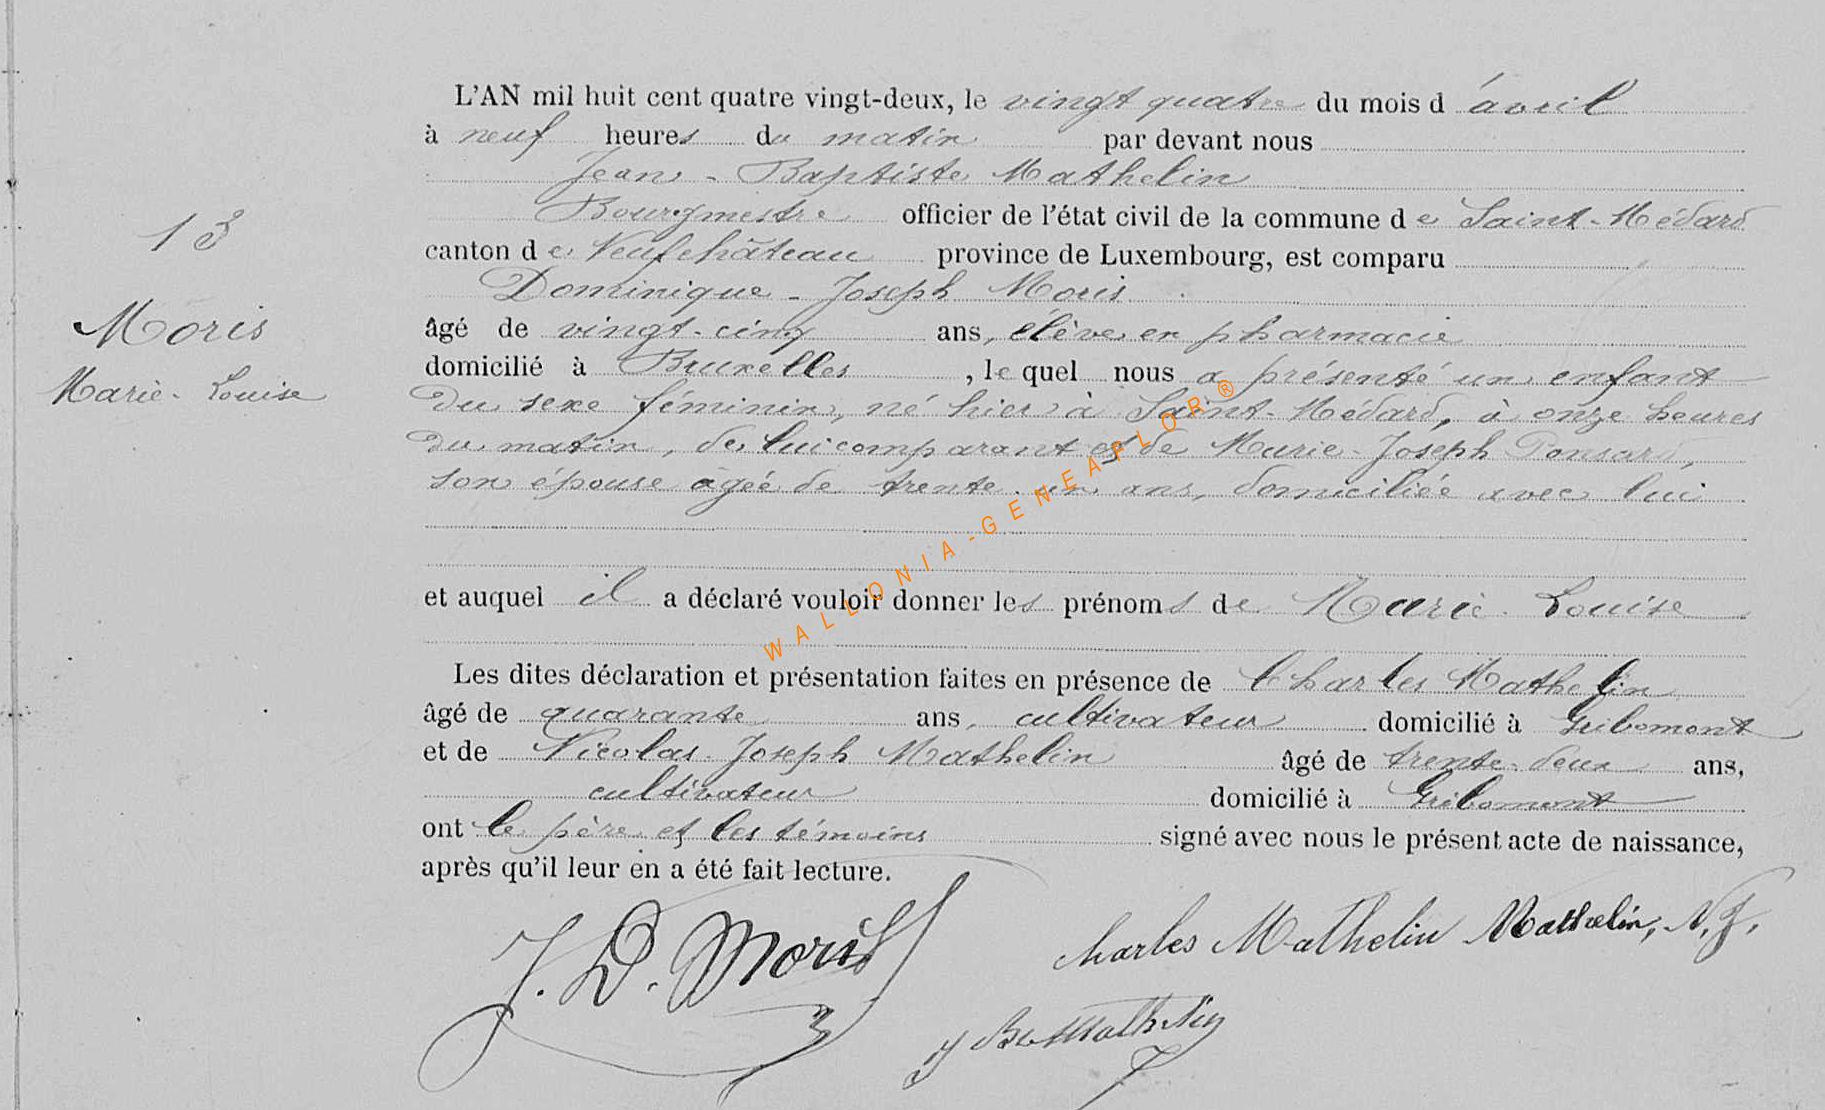 L'AN mil huit cent quatre vingt-deux, le vingt quatre du mois d'avril
à neuf heures du matin par devant nous
Jean-Baptiste Mathelin
Bourgmestre officier de l'état civil de la commune de Saint-Médard
canton de Neufchâteau province de Luxembourg, est comparu
Dominique-Joseph Moris
âgé de vingt-cinq ans, élève en pharmacie
domicilié à Bruxelles, le quel nous a présenté un enfant
du sexe féminin, né hier à Saint-Médard, à onze heures
du matin, de lui comparant et de Marie-Joseph Ponsard,
son épouse âgée de trente-un ans, domiciliée avec lui
et auquel il a déclaré vouloir donner les prénoms de Marie-Louise
Les dites déclaration et présentation faites en présence de Charles Mathelin
âgé de quarante ans, cultivateur domicilié à Gribomont
et de Nicolas-Joseph Mathelin âgé de trente-deux ans,
cultivateur domicilié à Gribomont
ont le père et les témoins signé avec nous le présent acte de naissance,
après qu'il leur en a été fait lecture.
13
Moris
Marie-Louise
J. D. Moris
Charles Mathelin
Mathelin, N. J.
J B Mathelin
WALLONIA-GENEAPLOR®